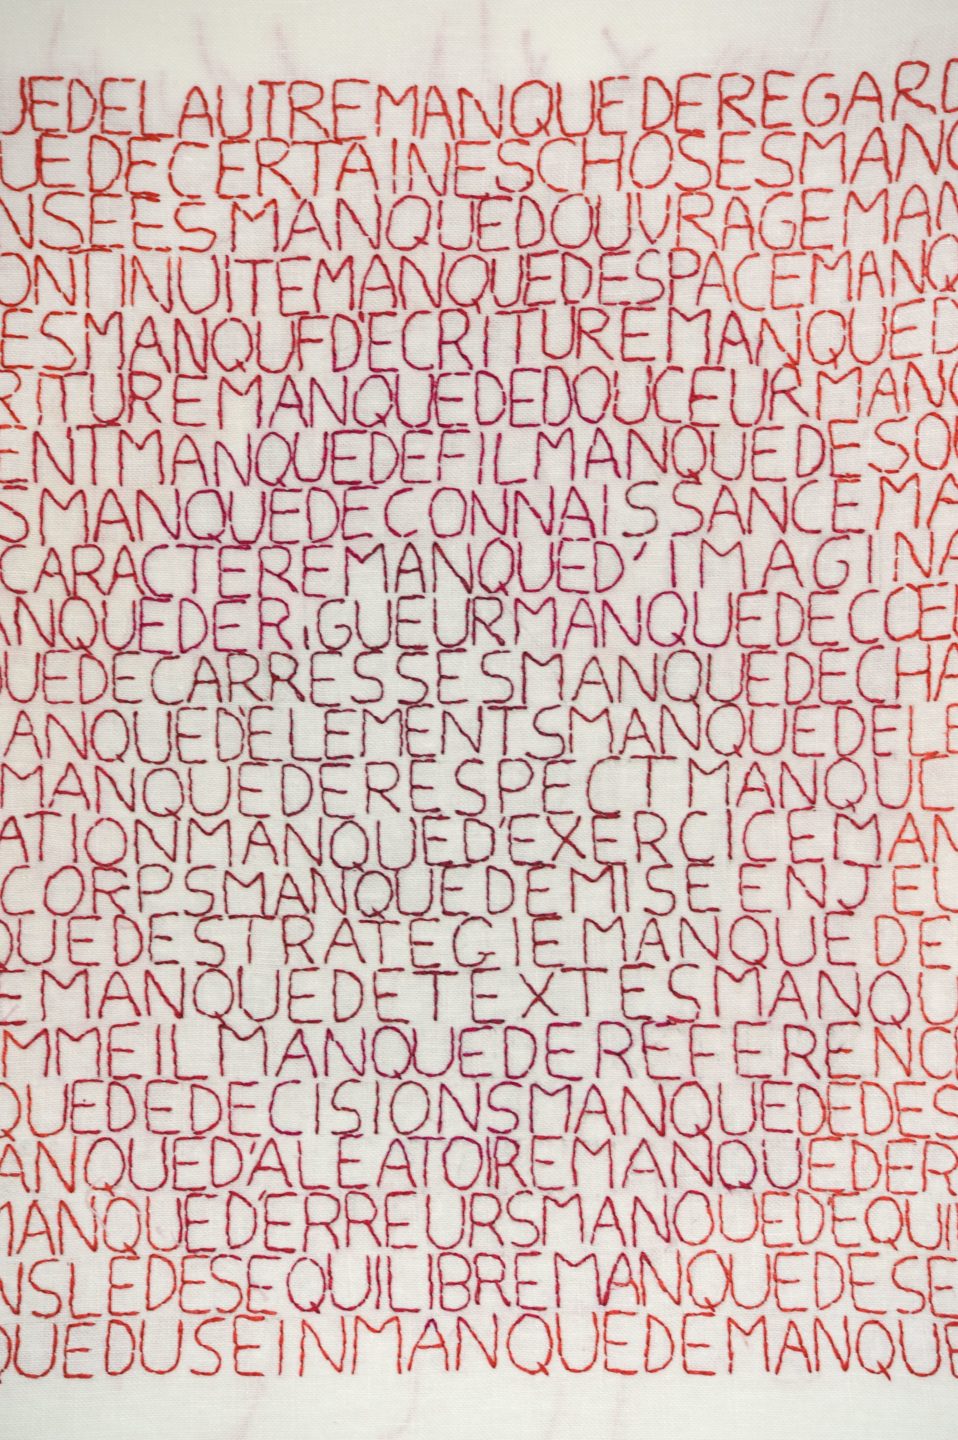 UEDELAUTREMANQUEDEREGARD
UEDECERTAINESCHOSESMANQ
NSEESMANQUEDOUVRAGEMAN
ONTINUITEMANQUEDESPACEMANQ
ESMANQUEDECRITUREMANQUED
RITUREMANQUEDEDOUCEURMANQ
ENTMANQUEDEFILMANQUEDESOU
SMANQUEDECONNAISSANCEMA
CARACTEREMANQUED'IMAGINA
ANQUEDERIGUEURMANQUEDECOEU
UEDECARRESSESMANQUEDECHA
ANQUED'ELEMENTSMANQUEDELE
MANQUEDERESPECTMANQUE
ATIONMANQUED'EXERCICEMAN
CORPSMANQUEDEMISEENJEU
QUEDESTRATEGIEMANQUEDE
EMANQUEDETEXTESMANQU
MMEILMANQUEDEREFERENC
QUEDEDECISIONSMANQUEDEDES
ANQUED'ALEATOIREMANQUEDER
MANQUED'ERREURSMANQUED'EQUI
NSLEDESEQUILIBREMANQUEDESE
QUEDUSEINMANQUEDEMANQUE